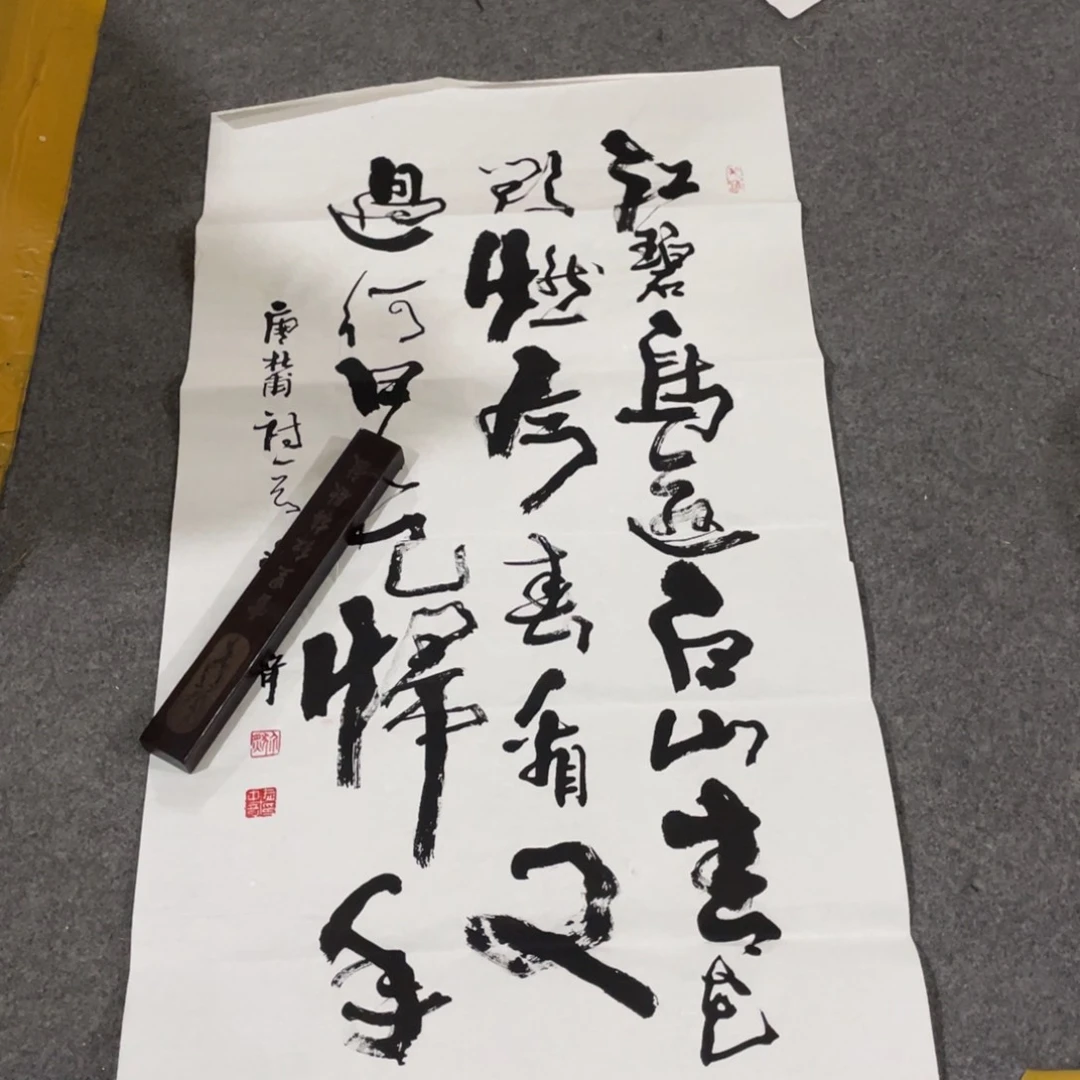 江碧鳥逾白山青花
欲燃今春看又
過何日是歸年
唐杜甫詩